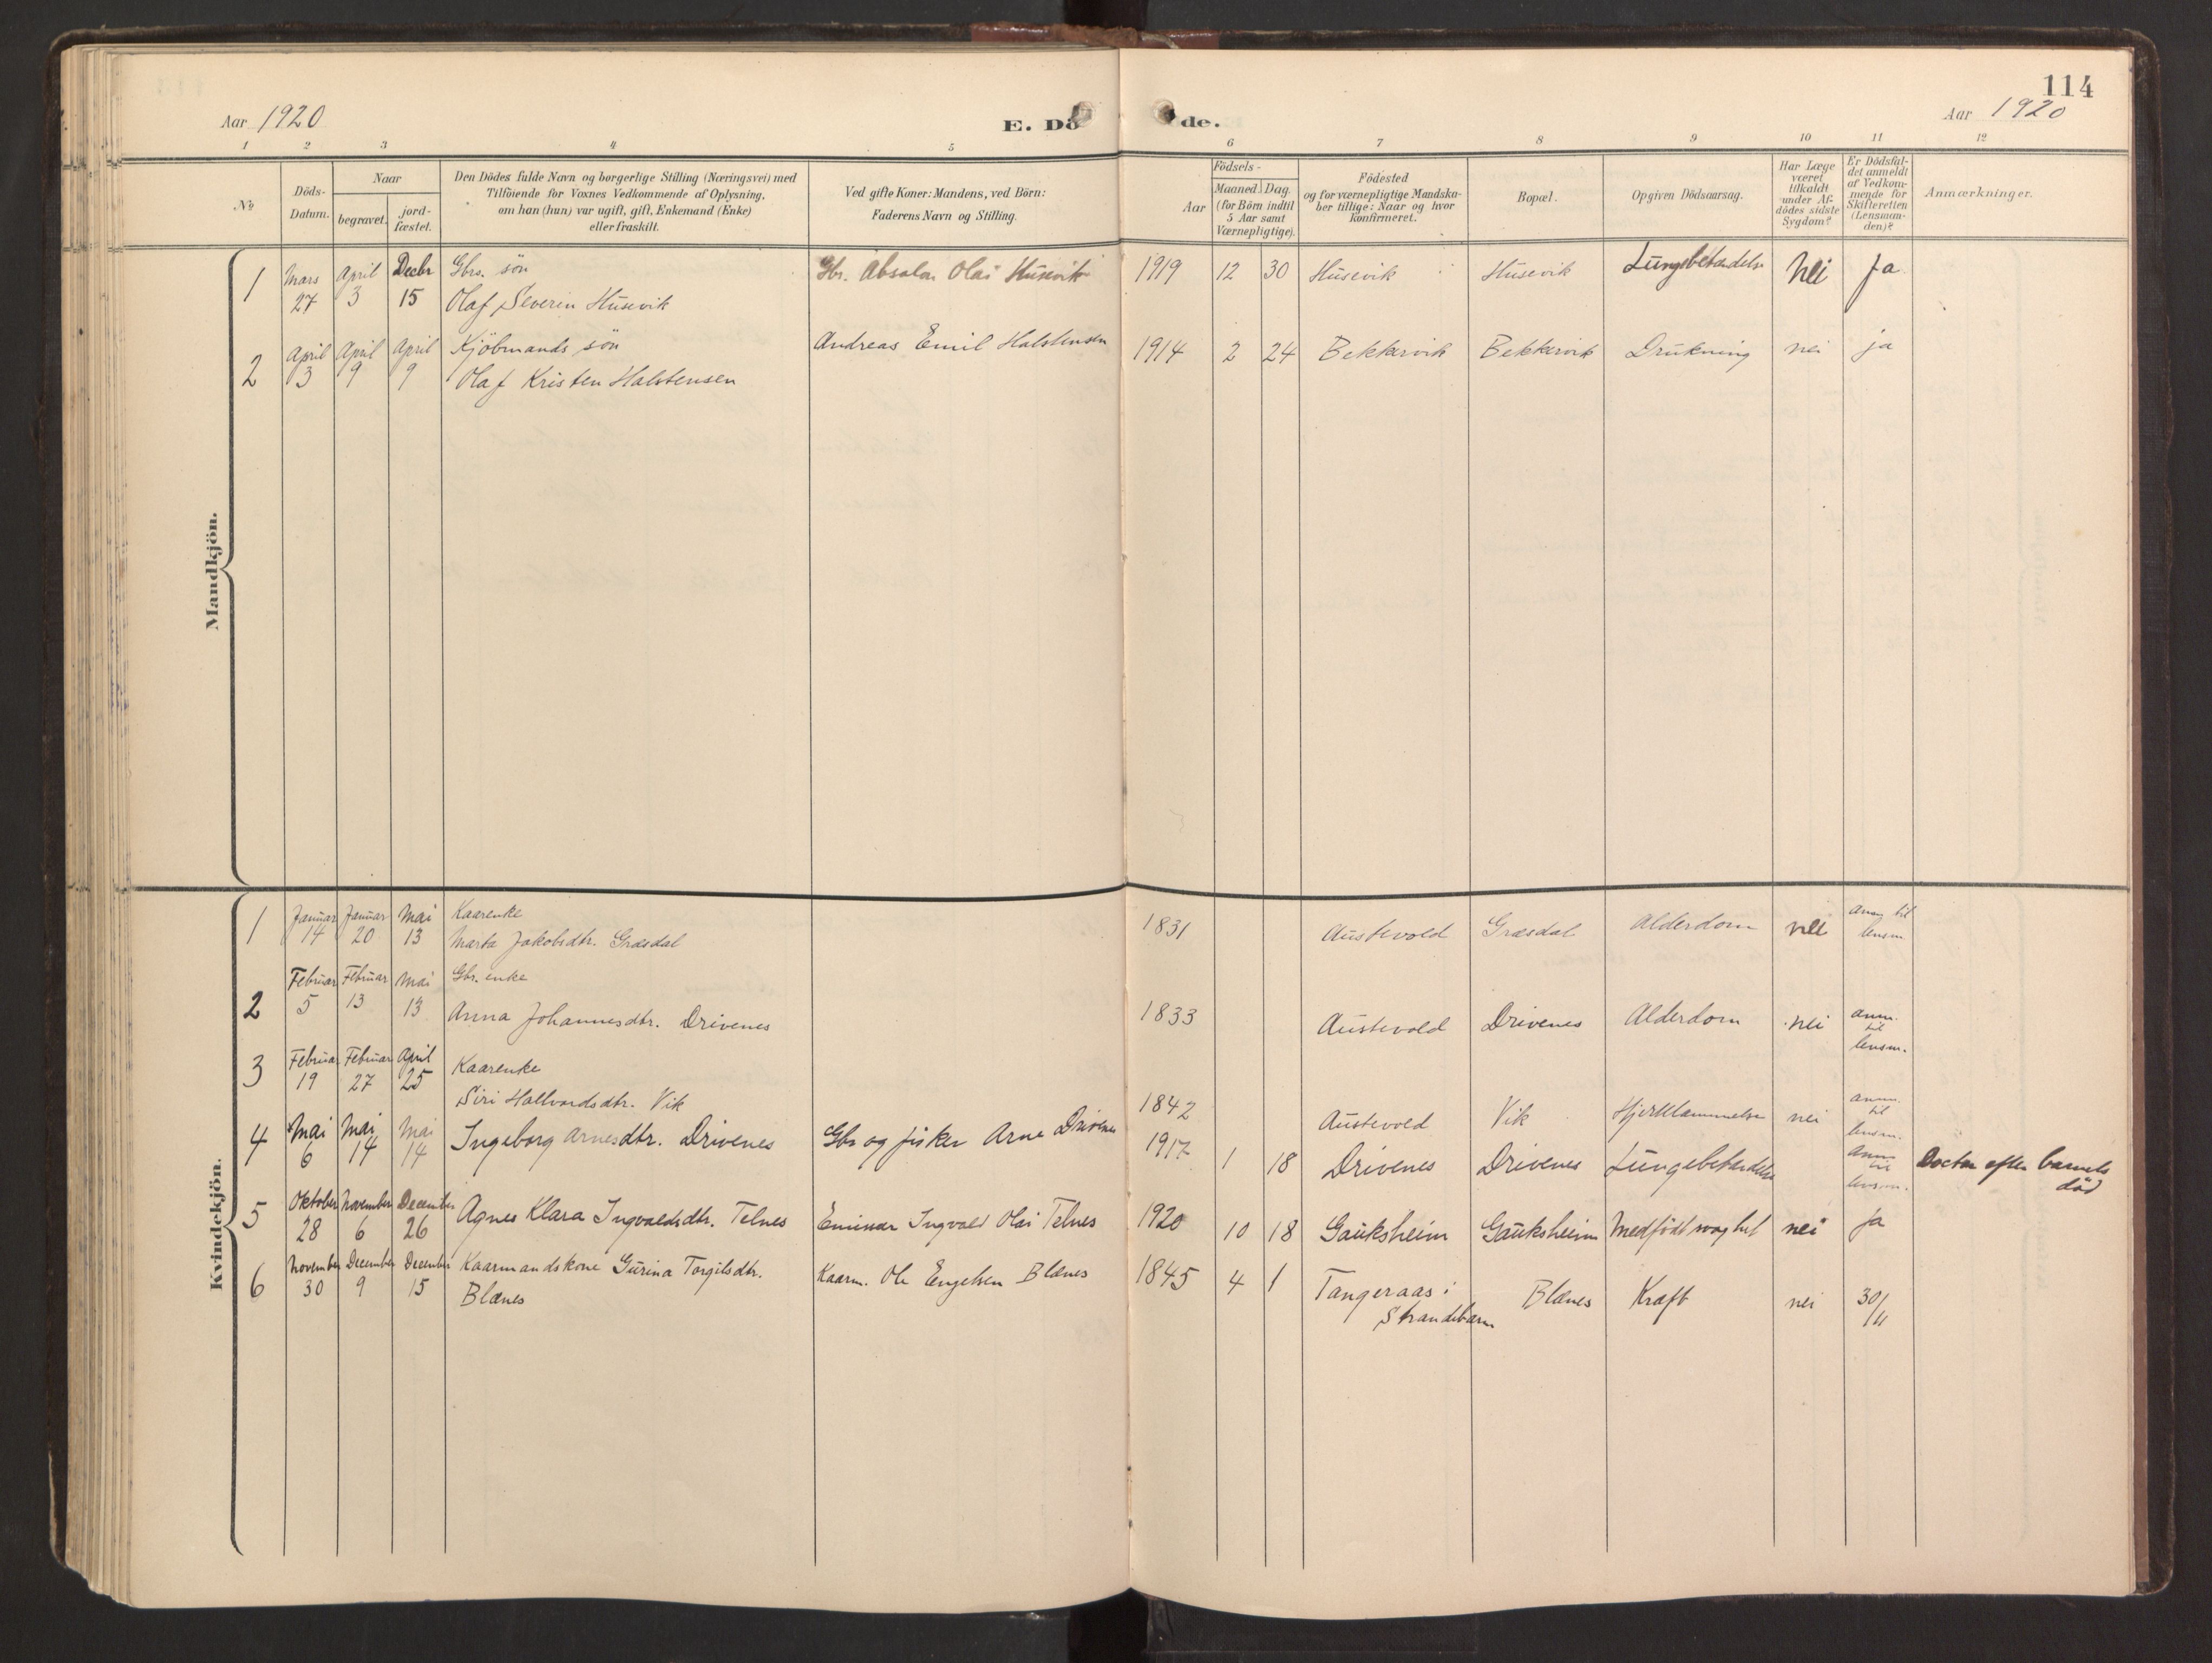 114
Aar 1920
E. Dö
de.
Aar 1920
1 2 3 4 5 6 7 8 9 10 11 12
№
Döds-
Datum.
Naar
begravet.
jord-
fæstet.
Den Dödes fulde Navn og borgerlige Stilling (Næringsvei) med
Tilföiende for Voxnes Vedkommende af Oplysning,
om han (hun) var ugift, gift, Enkemand (Enke)
eller fraskilt.
Ved gifte Koner: Mandens, ved Börn:
Faderens Navn og Stilling.
Födsels-
Aar
Maaned.
Dag.
(for Börn indtil
5 Aar samt
Værnepligtige).
Födested
og for værnepligtige Mandska-
ber tillige: Naar og hvor
Konfirmeret.
Bopæl.
Opgiven Dödsaarsag.
Har Læge
været
tilkaldt
under Af-
dödes sidste
Sygdom?
Er Dödsfal-
det anmeldt
af Vedkom-
mende for
Skifteretten
(Lensman-
den)?
Anmærkninger.
Mandkjön.
1 Mars 27 April 3 Decbr 15 Gbrs. sön
Olaf Severin Husevik
Gbr. Absalon Olai Husevik 1919 12 30 Husevik Husevik Lungebetendelse Nei Ja
2 April 3 April 9 April 9 Kjöbmands sön
Olaf Kristen Halstensen
Andreas Emil Halstensen 1914 2 24 Bekkervik Bekkervik Drukning nei ja
Kvindekjön.
1 Januar 14 Januar 20 Mai 13 Kaarenke
Marta Jakobsdtr. Græsdal
1831 Austevold Græsdal Alderdom nei anm til
lensm
2 Februar 5 Februar 13 Mai 13 Gbr. enke
Anna Johannesdtr. Drivenes
1833 Austevold Drivenes Alderdom nei anm.
til
lensm.
3 Februar 19 Februar 27 April 25 Kaarenke
Siri Hallvardsdtr. Vik
1842 Austevold Vik Hjertelammelse nei anm.
til
lensm.
4 Mai 6 Mai 14 Mai 14 Ingeborg Arnesdtr. Drivenes Gbr og fisker Arne Drivenes 1917 1 18 Drivenes Drivenes Lungebetendelse anm
til
lensm.
Doctor efter barnets
död
5 Oktober 28 November 6 December 26 Agnes Klara Ingvaldsdtr. Telnes Emissær Ingvald Olai Telnes 1920 10 18 Gauksheim Gauksheim Medfödt svaghet nei ja
6 November 30 December 9 December 15 Kaarmandskone Gurina Torgilsdtr.
Blænes
Kaarm. Ole Engelsen Blænes 1845 4 1 Tangeraas i
Strandebarm
Blænes Kræft nei 30/11